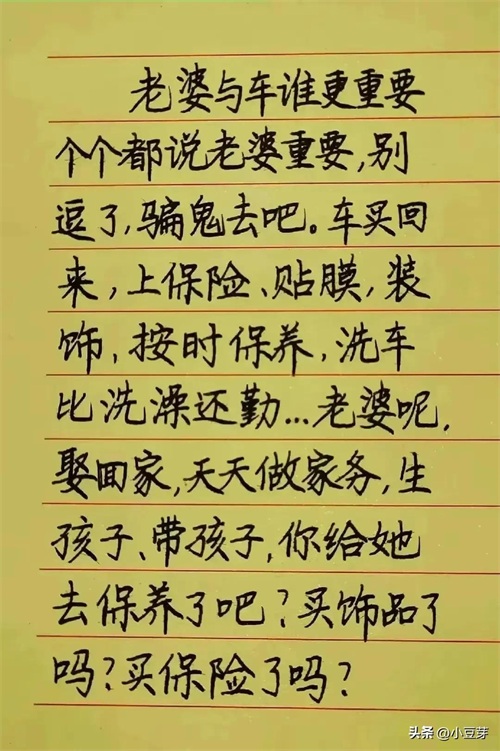 老婆与车谁更重要
个个都说老婆重要,别
逗了,骗鬼去吧。车买回
来,上保险、贴膜,装
饰,按时保养,洗车
比洗澡还勤...老婆呢,
娶回家,天天做家务,生
孩子、带孩子,你给她
去保养了吧?买饰品了
吗?买保险了吗?
头条 @小豆芽